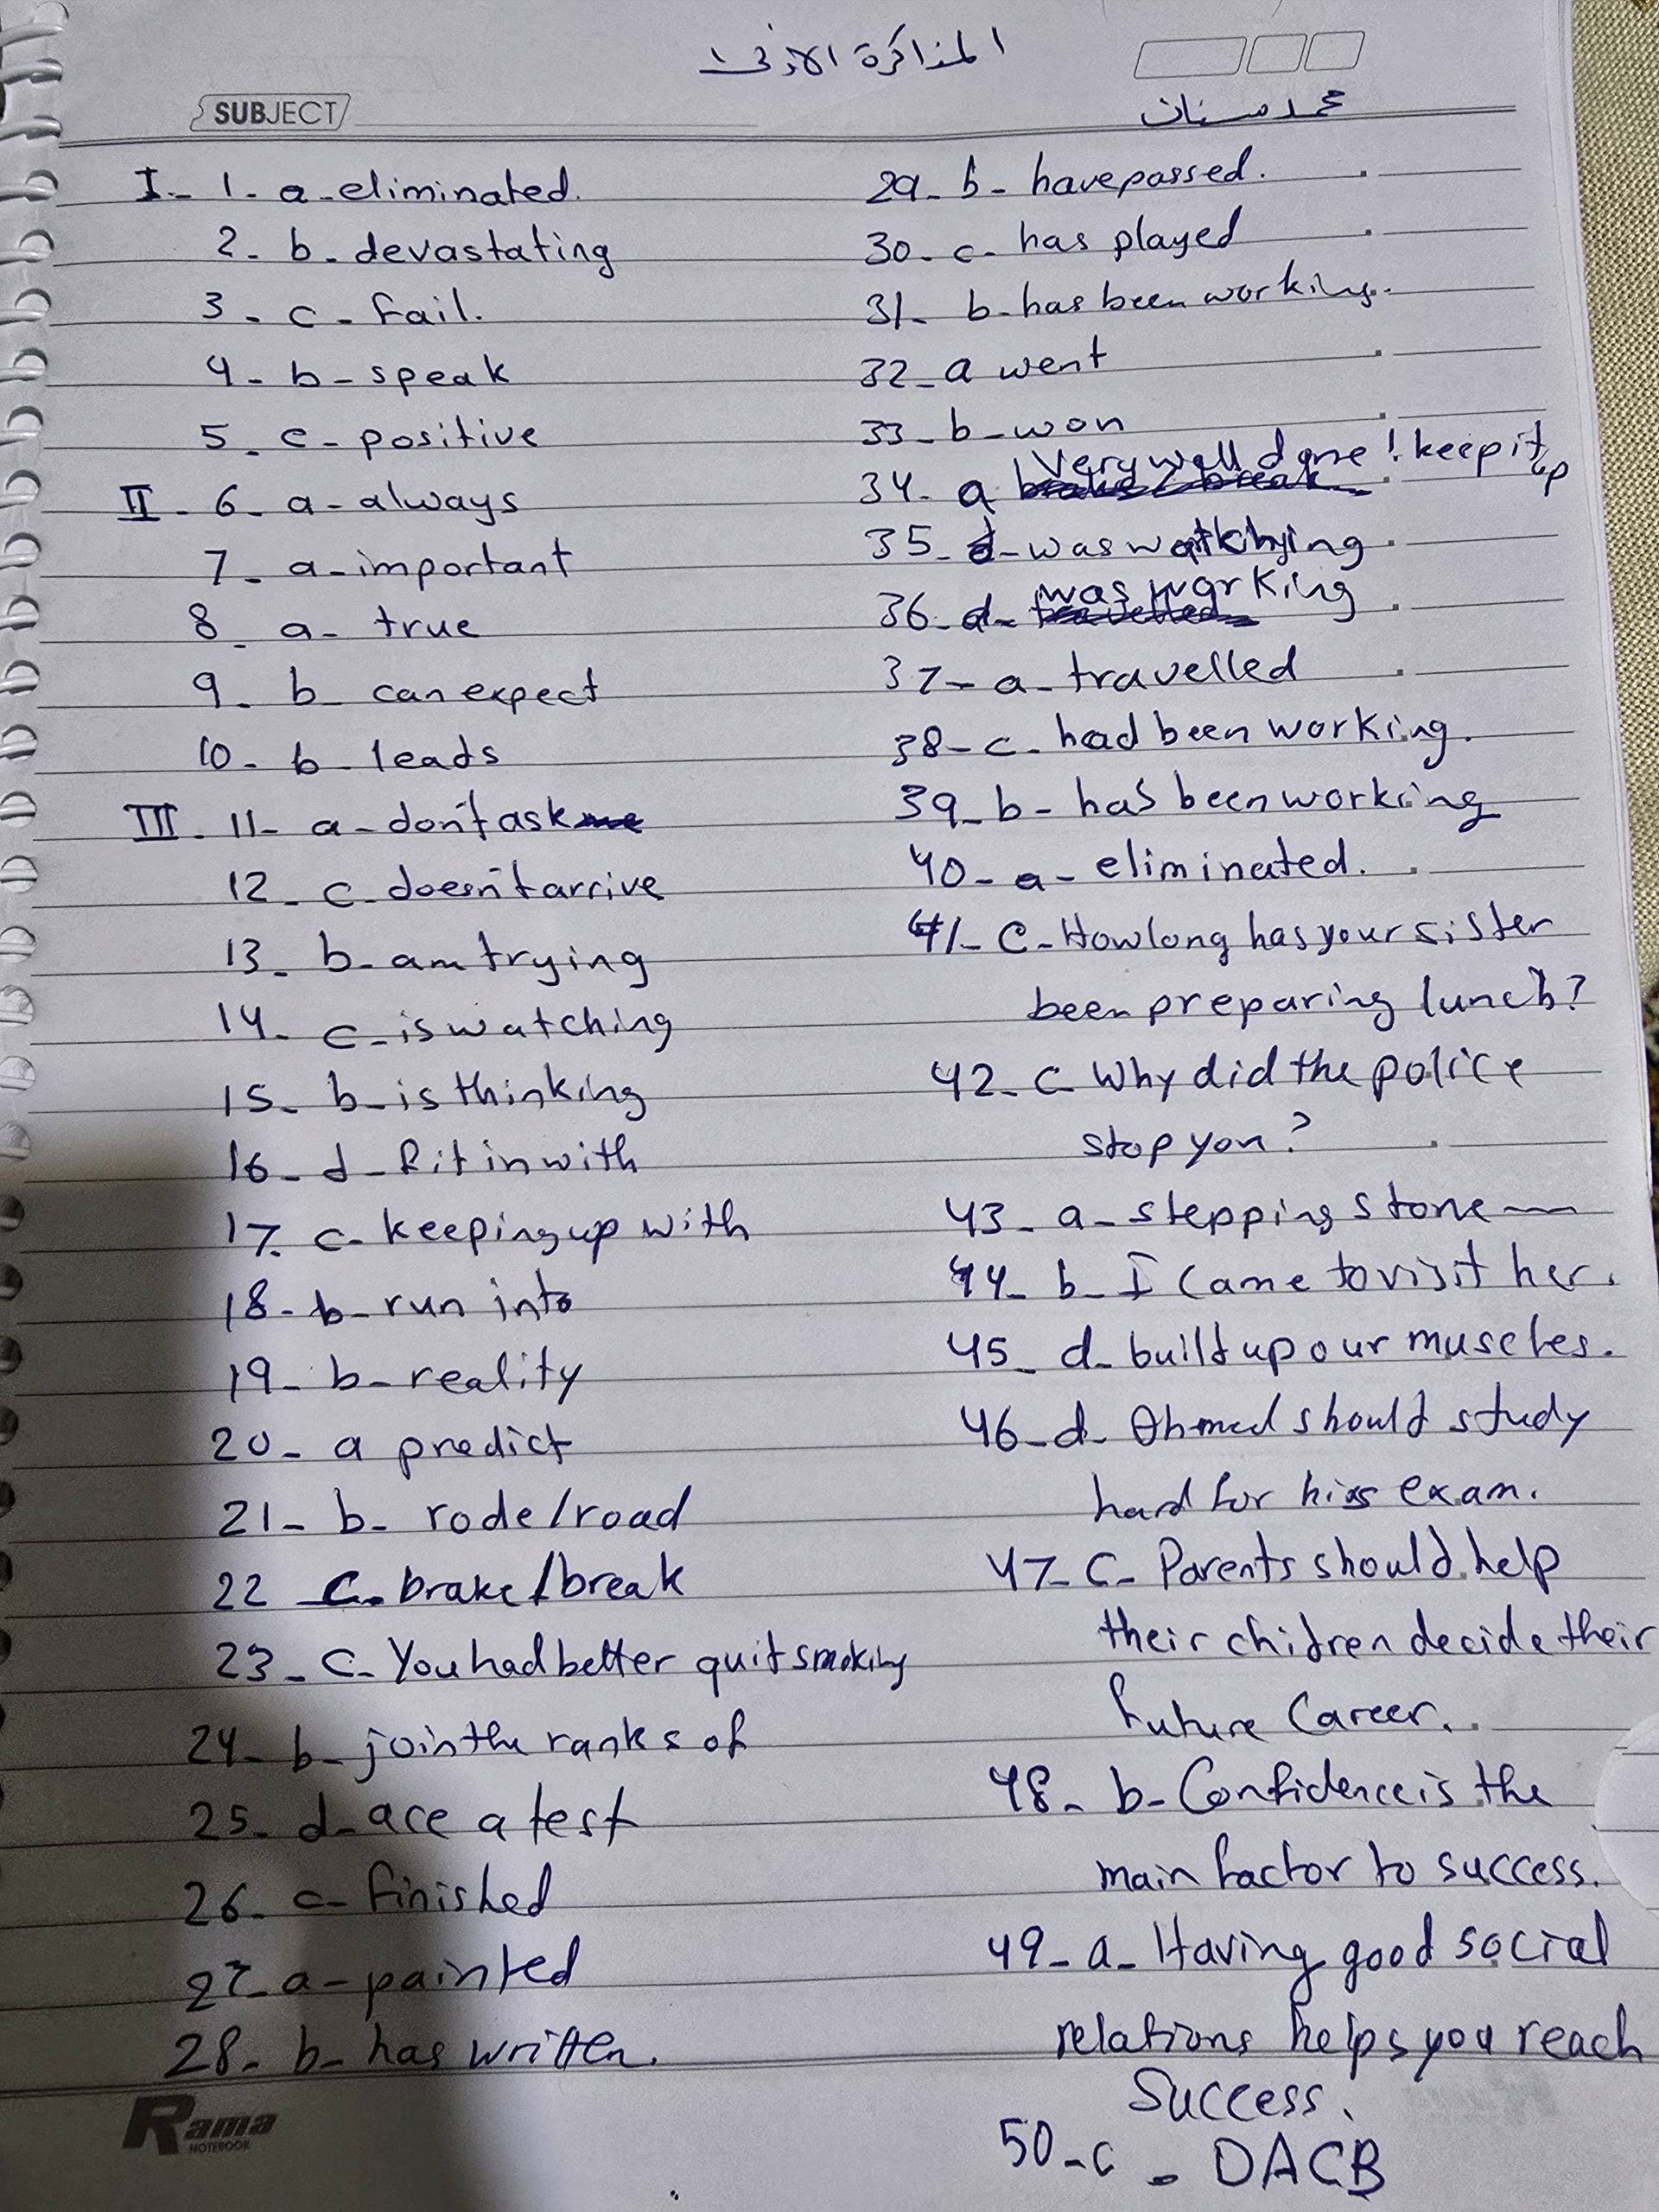 المذاكرة الأولى
SUBJECT
محمد سنان
I - 1 - a - eliminated.
2 - b - devastating
3 - c - fail.
4 - b - speak
5 - c - positive
II - 6 - a - always
7 - a - important
8 - a - true
9 - b - can expect
10 - b - leads
III - 11 - a - don't ask
12 - c - doesn't arrive
13 - b - am trying
14 - c - is watching
15 - b - is thinking
16 - d - fit in with
17 - c - keeping up with
18 - b - run into
19 - b - reality
20 - a predict
21 - b - rode/road
22 c. brake/break
23 - c - You had better quit smoking
24 - b - join the ranks of
25 - d - ace a test
26 - c - finished
27 - a - painted
28 - b - has written.
29 - b - have passed.
30 - c - has played
31 - b - has been working.
32 - a went
33 - b - won
34 - a Very well done! keep it up
35 - d - was watching
36 - d - was working
37 - a - travelled
38 - c - had been working.
39 - b - has been working
40 - a - eliminated.
41 - C - How long has your sister
been preparing lunch?
42 - c Why did the police
stop you?
43 - a - stepping stone
44 - b - I came to visit her.
45 - d - build up our muscles.
46 - d - Ahmed should study
hard for his exam.
47 - C - Parents should help
their chidren decide their
future Career.
48 - b - Confidence is the
main factor to success.
49 - a - Having good social
relations helps you reach
Success.
50 - c - DACB
Rama
NOTEBOOK